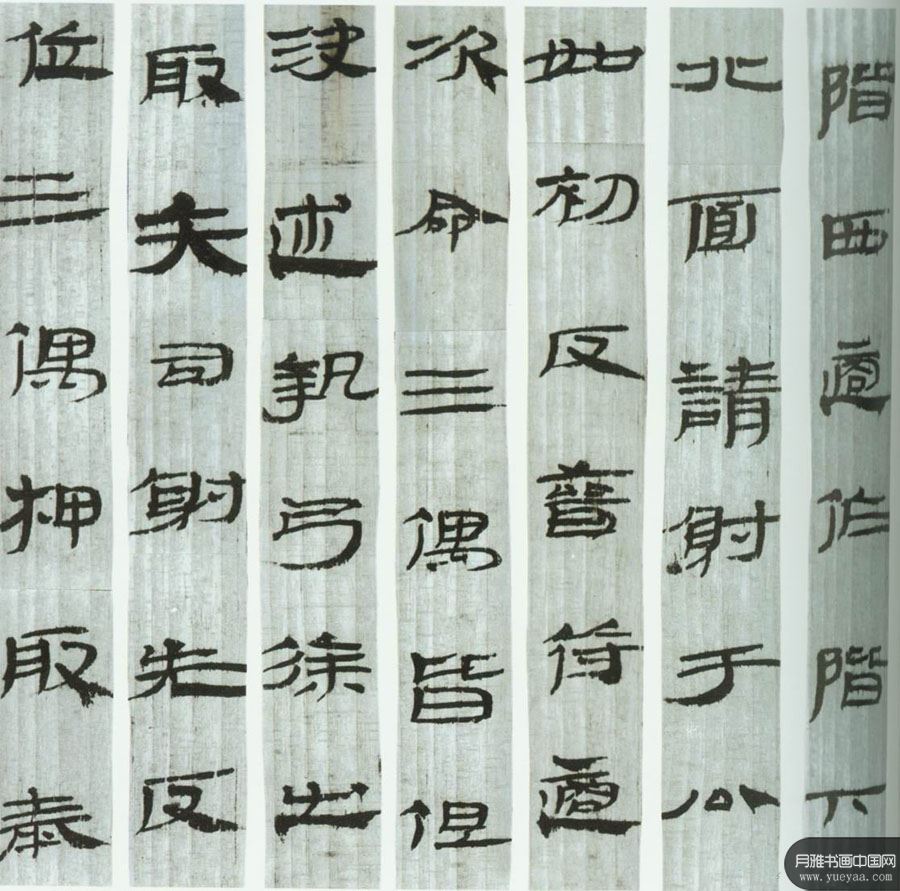 階西適作階下
北面請射于公
如初反晉符適
次命三偶皆但
決述執弓徐出
取矢司射先反
位三偶押取泰
月雅书画中国网
www.yueyaa.com